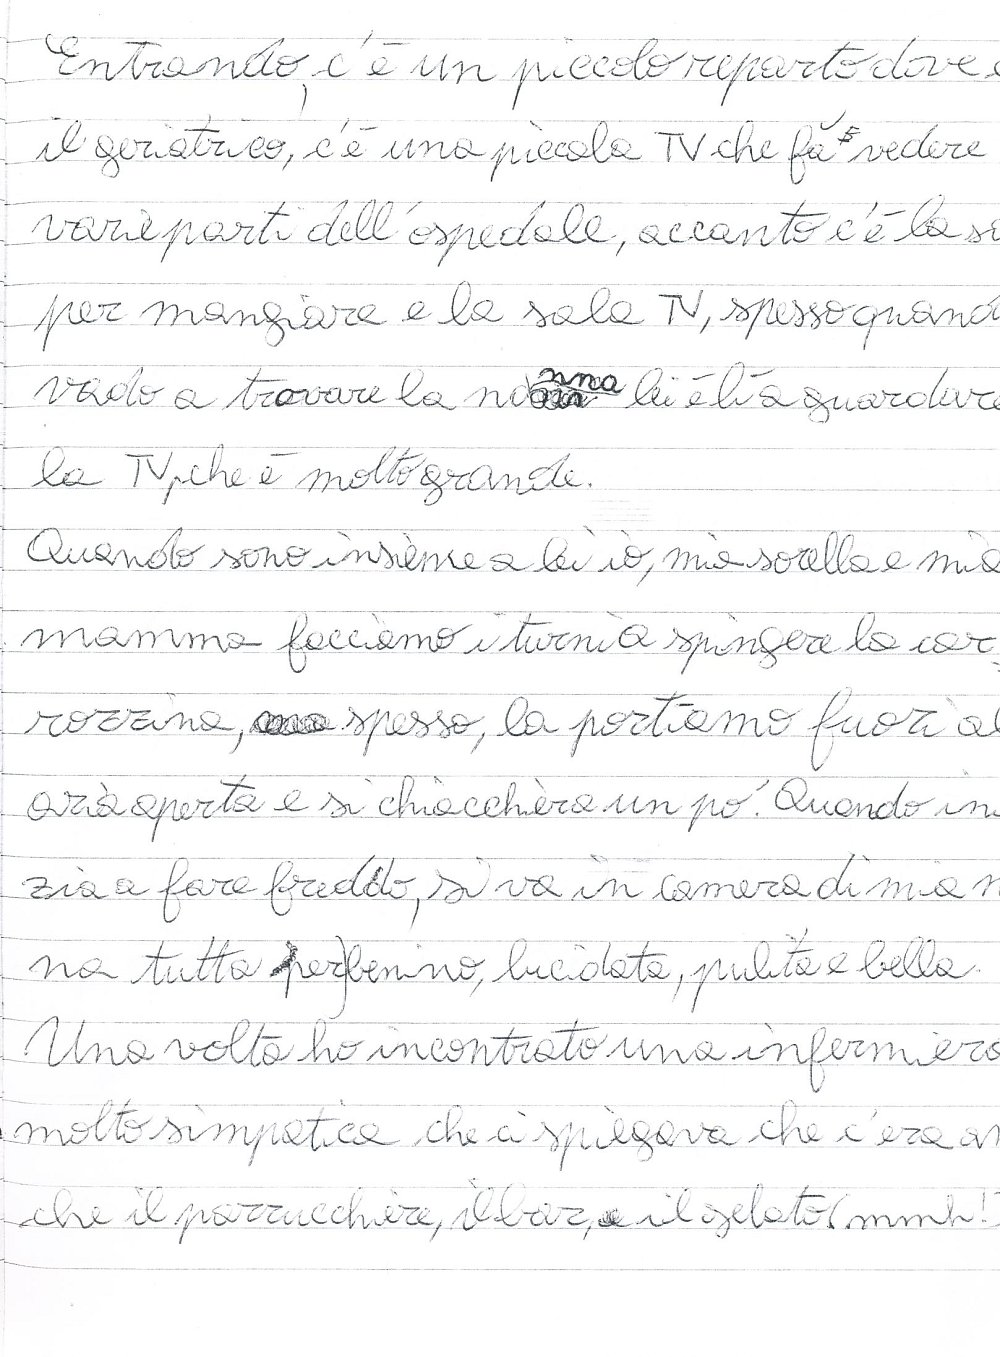 Entrando, c'è un piccolo reparto dove è
il geriatrico, c'è una piccola TV che fà vedere
varie parti dell'ospedale, accanto c'è la
per mangiare e la sala TV, spesso quand
vado a trovare la nonna lei è lì a guardare
la TV, che è molto grande.
Quando sono insieme a lei io, mia sorella e mia
mamma facciamo i turni a spingere la car
rozzina, spesso, la portiamo fuori al
aria aperta e si chiacchiera un po'. Quando ini
zia a fare freddo, si va in camera di mia n
na tutta perbenino, lucidata, pulita e bella.
Una volta ho incontrato una infermiera
molto simpatica che ci spiegava che c'era an
che il parrucchiere, il bar, e il gelato (mmh!